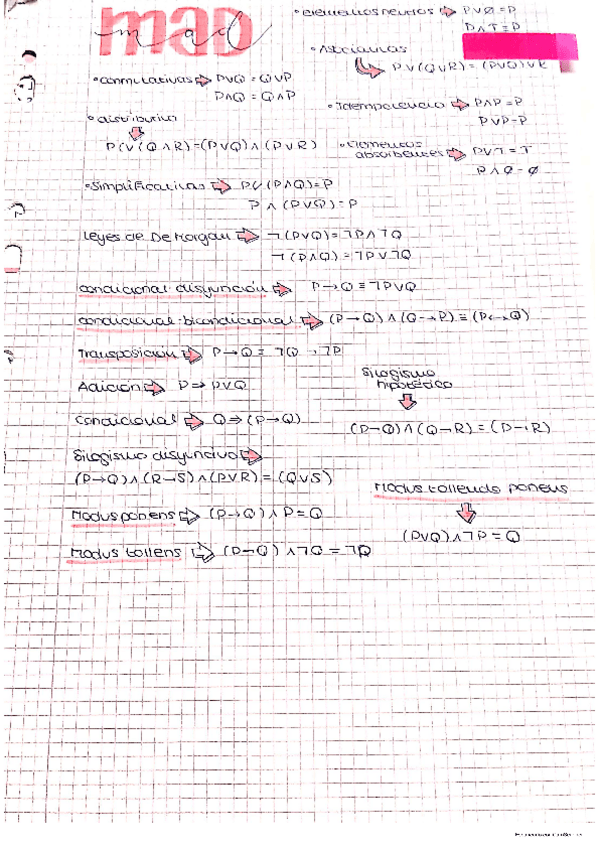 MAD
mad
• elementos neutros ⇨ P∨Ø = P
P∧T = P
• Asociativas
P∨(Q∨R) = (P∨Q)∨R
• conmutativas ⇨ P∨Q = Q∨P
P∧Q = Q∧P
• Idempotencia ⇨ P∧P = P
P∨P = P
• distributiva
P(∨(Q∧R) = (P∨Q)∧(P∨R)
• Elementos
absorbentes ⇨ P∨T = T
P∧Ø = Ø
• Simplificativas ⇨ P∨(P∧Q) = P
P∧(P∨Q) = P
Leyes de De Morgan ⇨ ¬(P∨Q) = ¬P∧¬Q
¬(P∧Q) = ¬P∨¬Q
condicional-disyunción ⇨ P→Q ≡ ¬P∨Q
condicional-bicondicional ⇨ (P→Q)∧(Q→P) ≡ (P↔Q)
Transposición ⇨ P→Q = ¬Q→¬P
Adición ⇨ P⇒P∨Q
Silogismo
hipotético
(P→Q)∧(Q→R) = (P→R)
condicional ⇨ Q⇒(P→Q)
Silogismo disyuntivo ⇨
(P→Q)∧(R→S)∧(P∨R) = (Q∨S)
Modus tollendo ponens
(P∨Q)∧¬P = Q
Modus ponens ⇨ (P→Q)∧P = Q
Modus tollens ⇨ (P→Q)∧¬Q = ¬P